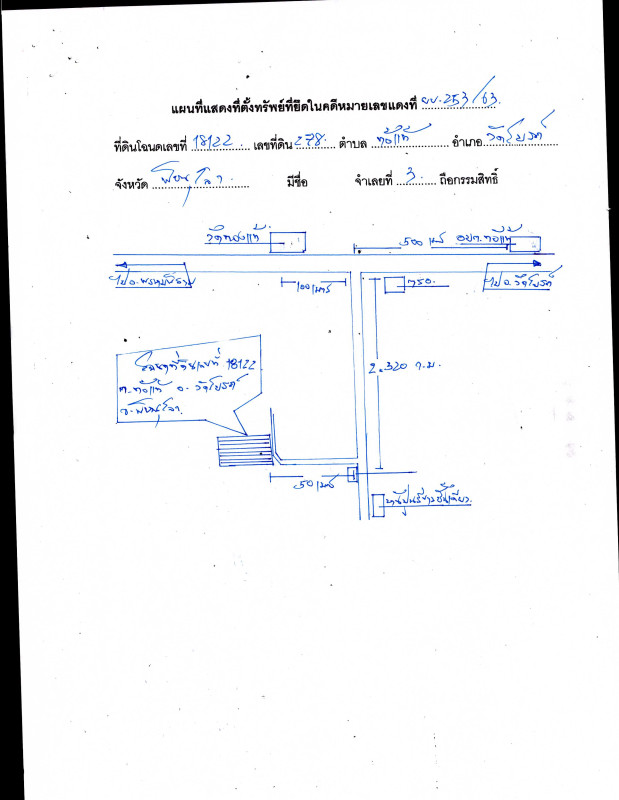 แผนที่แสดงที่ตั้งทรัพย์ที่ยึดในคดีหมายเลขแดงที่ ผบ.253/63
ที่ดินโฉนดเลขที่ 18122 เลขที่ดิน 278 ตำบล ท้อแท้ อำเภอ วัดโบสถ์
จังหวัด พิษณุโลก มีชื่อ จำเลยที่ 3 ถือกรรมสิทธิ์
500 เมตร อบต.ท้อแท้
ไป อ.พรหมพิราม
100 เมตร
ไป อ.วัดโบสถ์
โฉนดที่ดินเลขที่ 18122
ต.ท้อแท้ อ.วัดโบสถ์
จ.พิษณุโลก
2.320 ก.ม.
50 เมตร